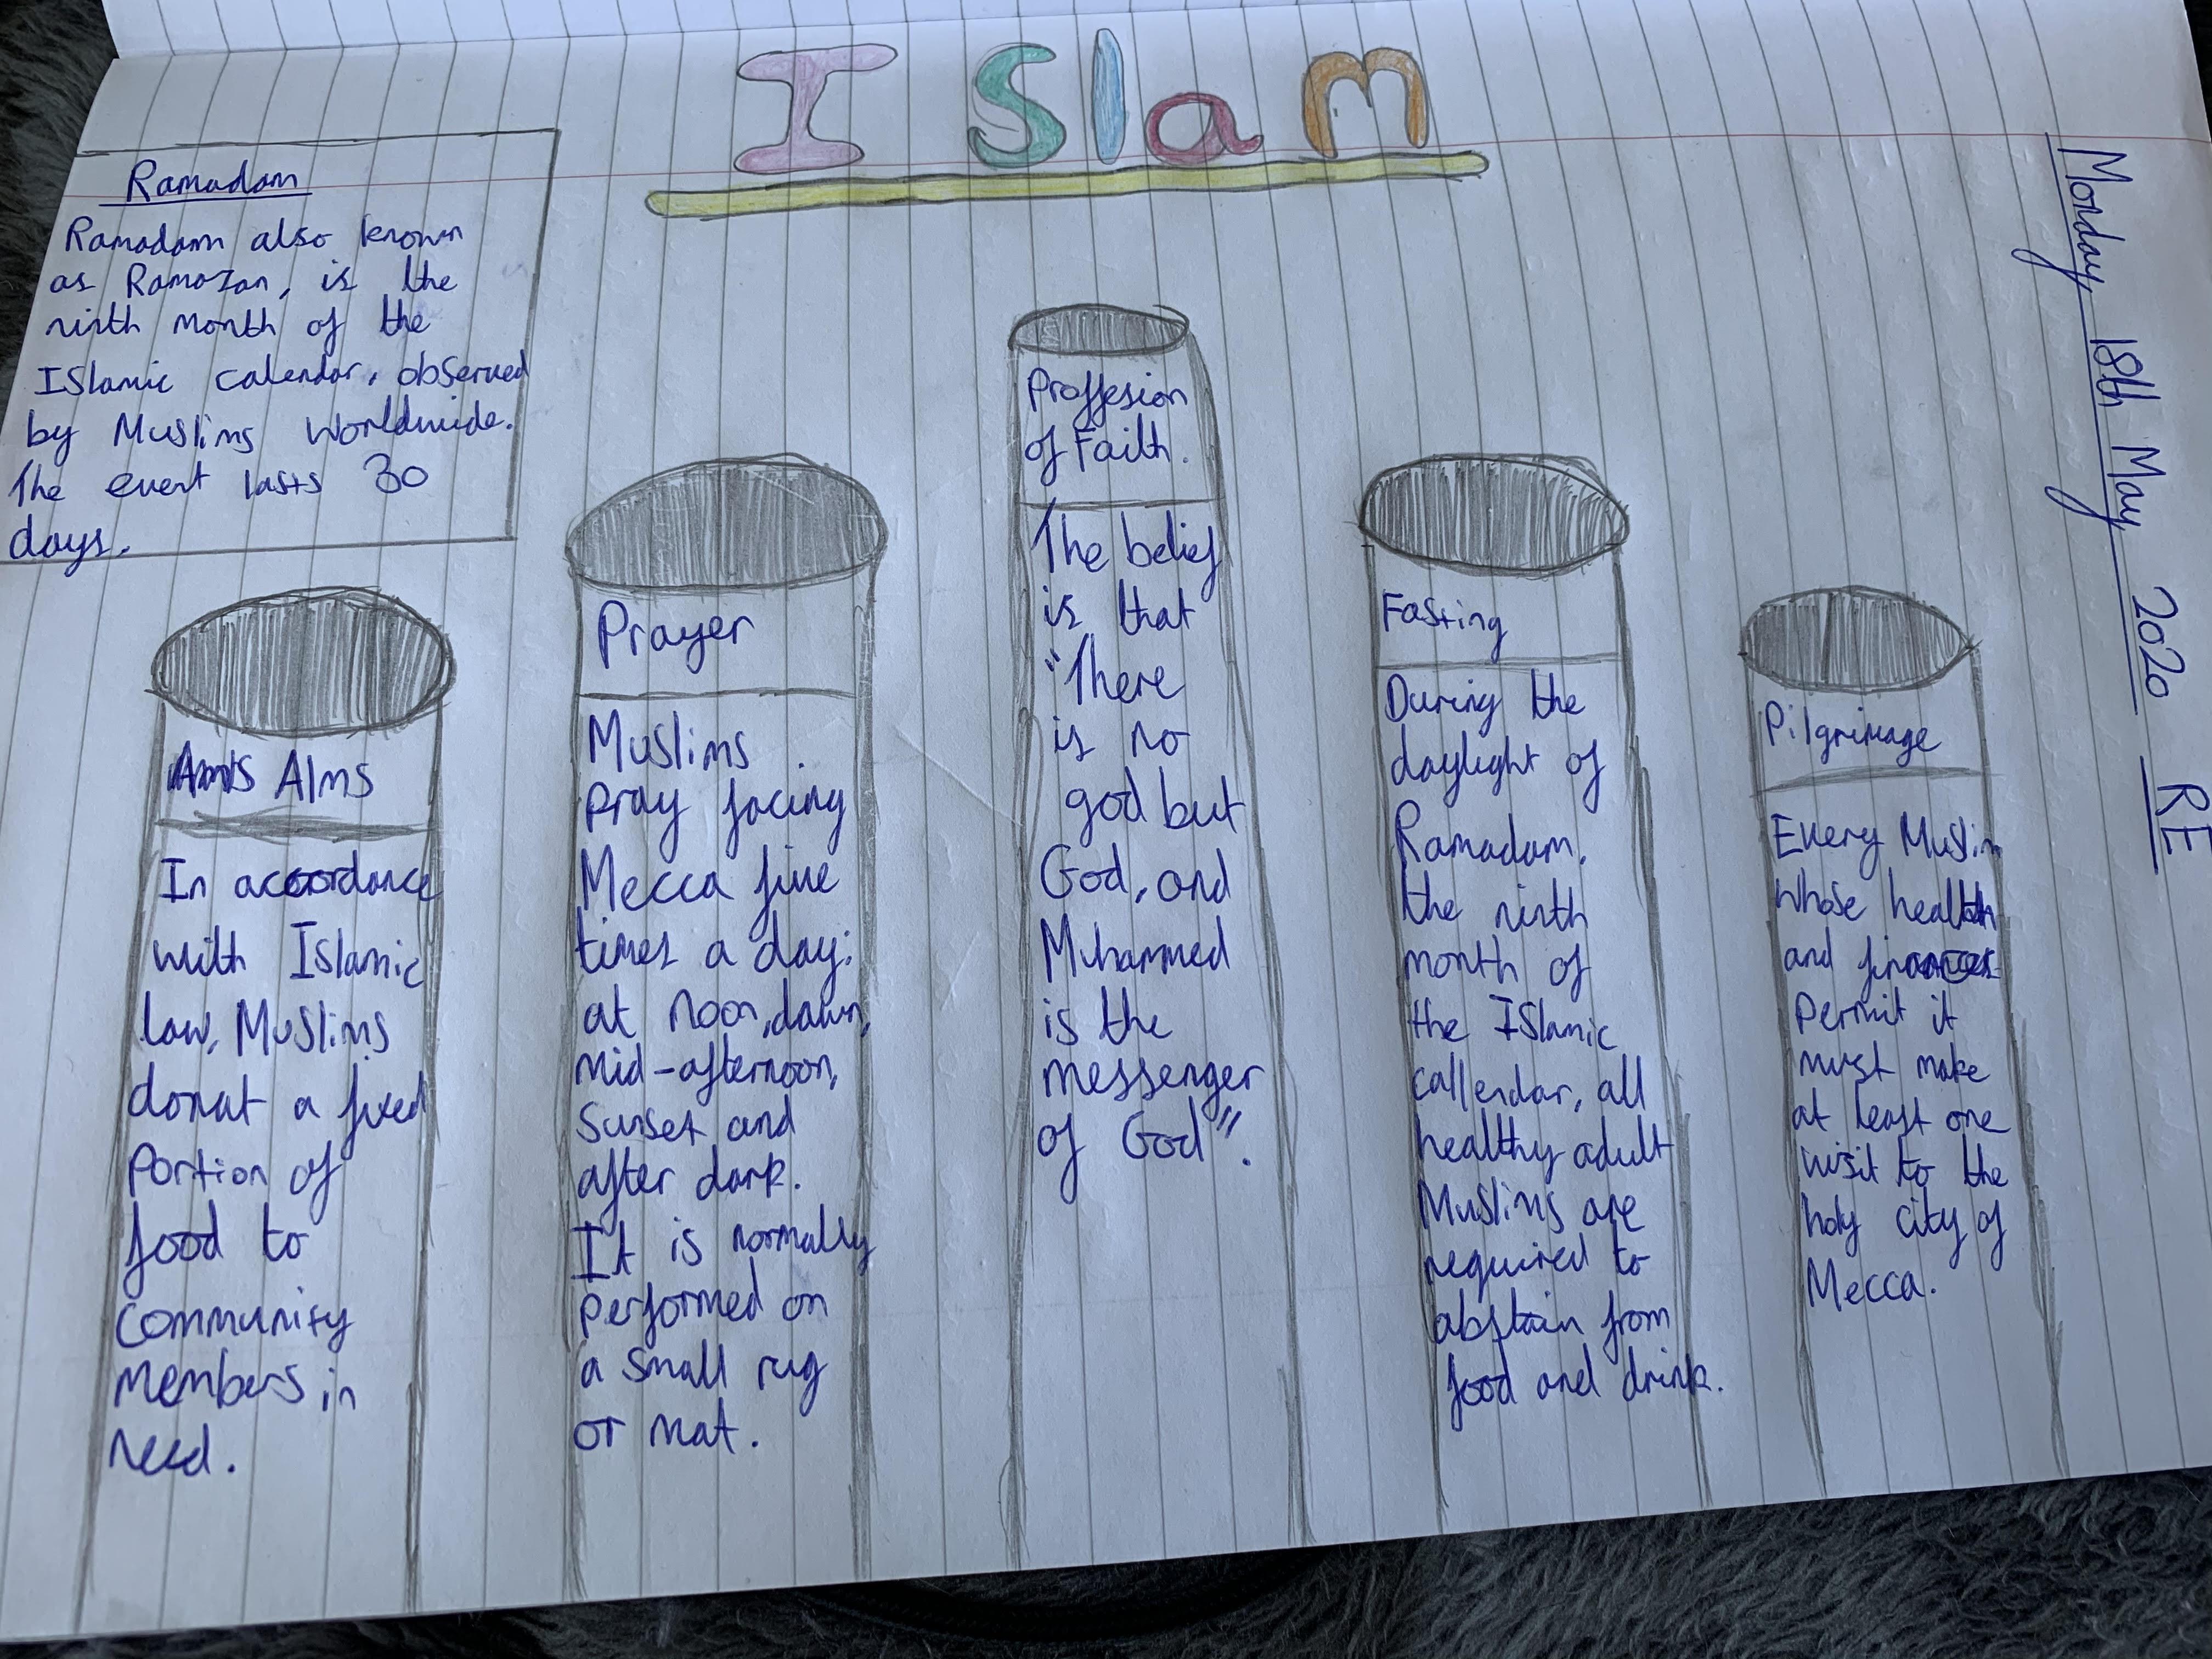 ISlam
Monday 18th May 2020 RE
Ramadam
Ramadam also known
as Ramazan, is the
ninth month of the
ISlamic calendar, observed
by Muslims worldwide.
The event lasts 30
days.
Alms
In accordance
with Islamic
law, Muslims
donat a fixed
Portion of
food to
community
members in
need.
Prayer
Muslims
pray facing
Mecca five
times a day:
at noon, dawn,
mid-afternoon,
sunset and
after dark.
It is normally
performed on
a small rug
or mat.
Proffesion
of Faith.
The belief
is that
"There
is no
god but
God, and
Muhammed
is the
messenger
of God".
Fasting
During the
daylight of
Ramadam,
the ninth
month of
the ISlamic
callendar, all
healthy adult
Muslims are
required to
abstain from
food and drink.
Pilgrimage
Every Muslim
whose health
and finances
Permit it
must make
at least one
visit to the
holy city of
Mecca.